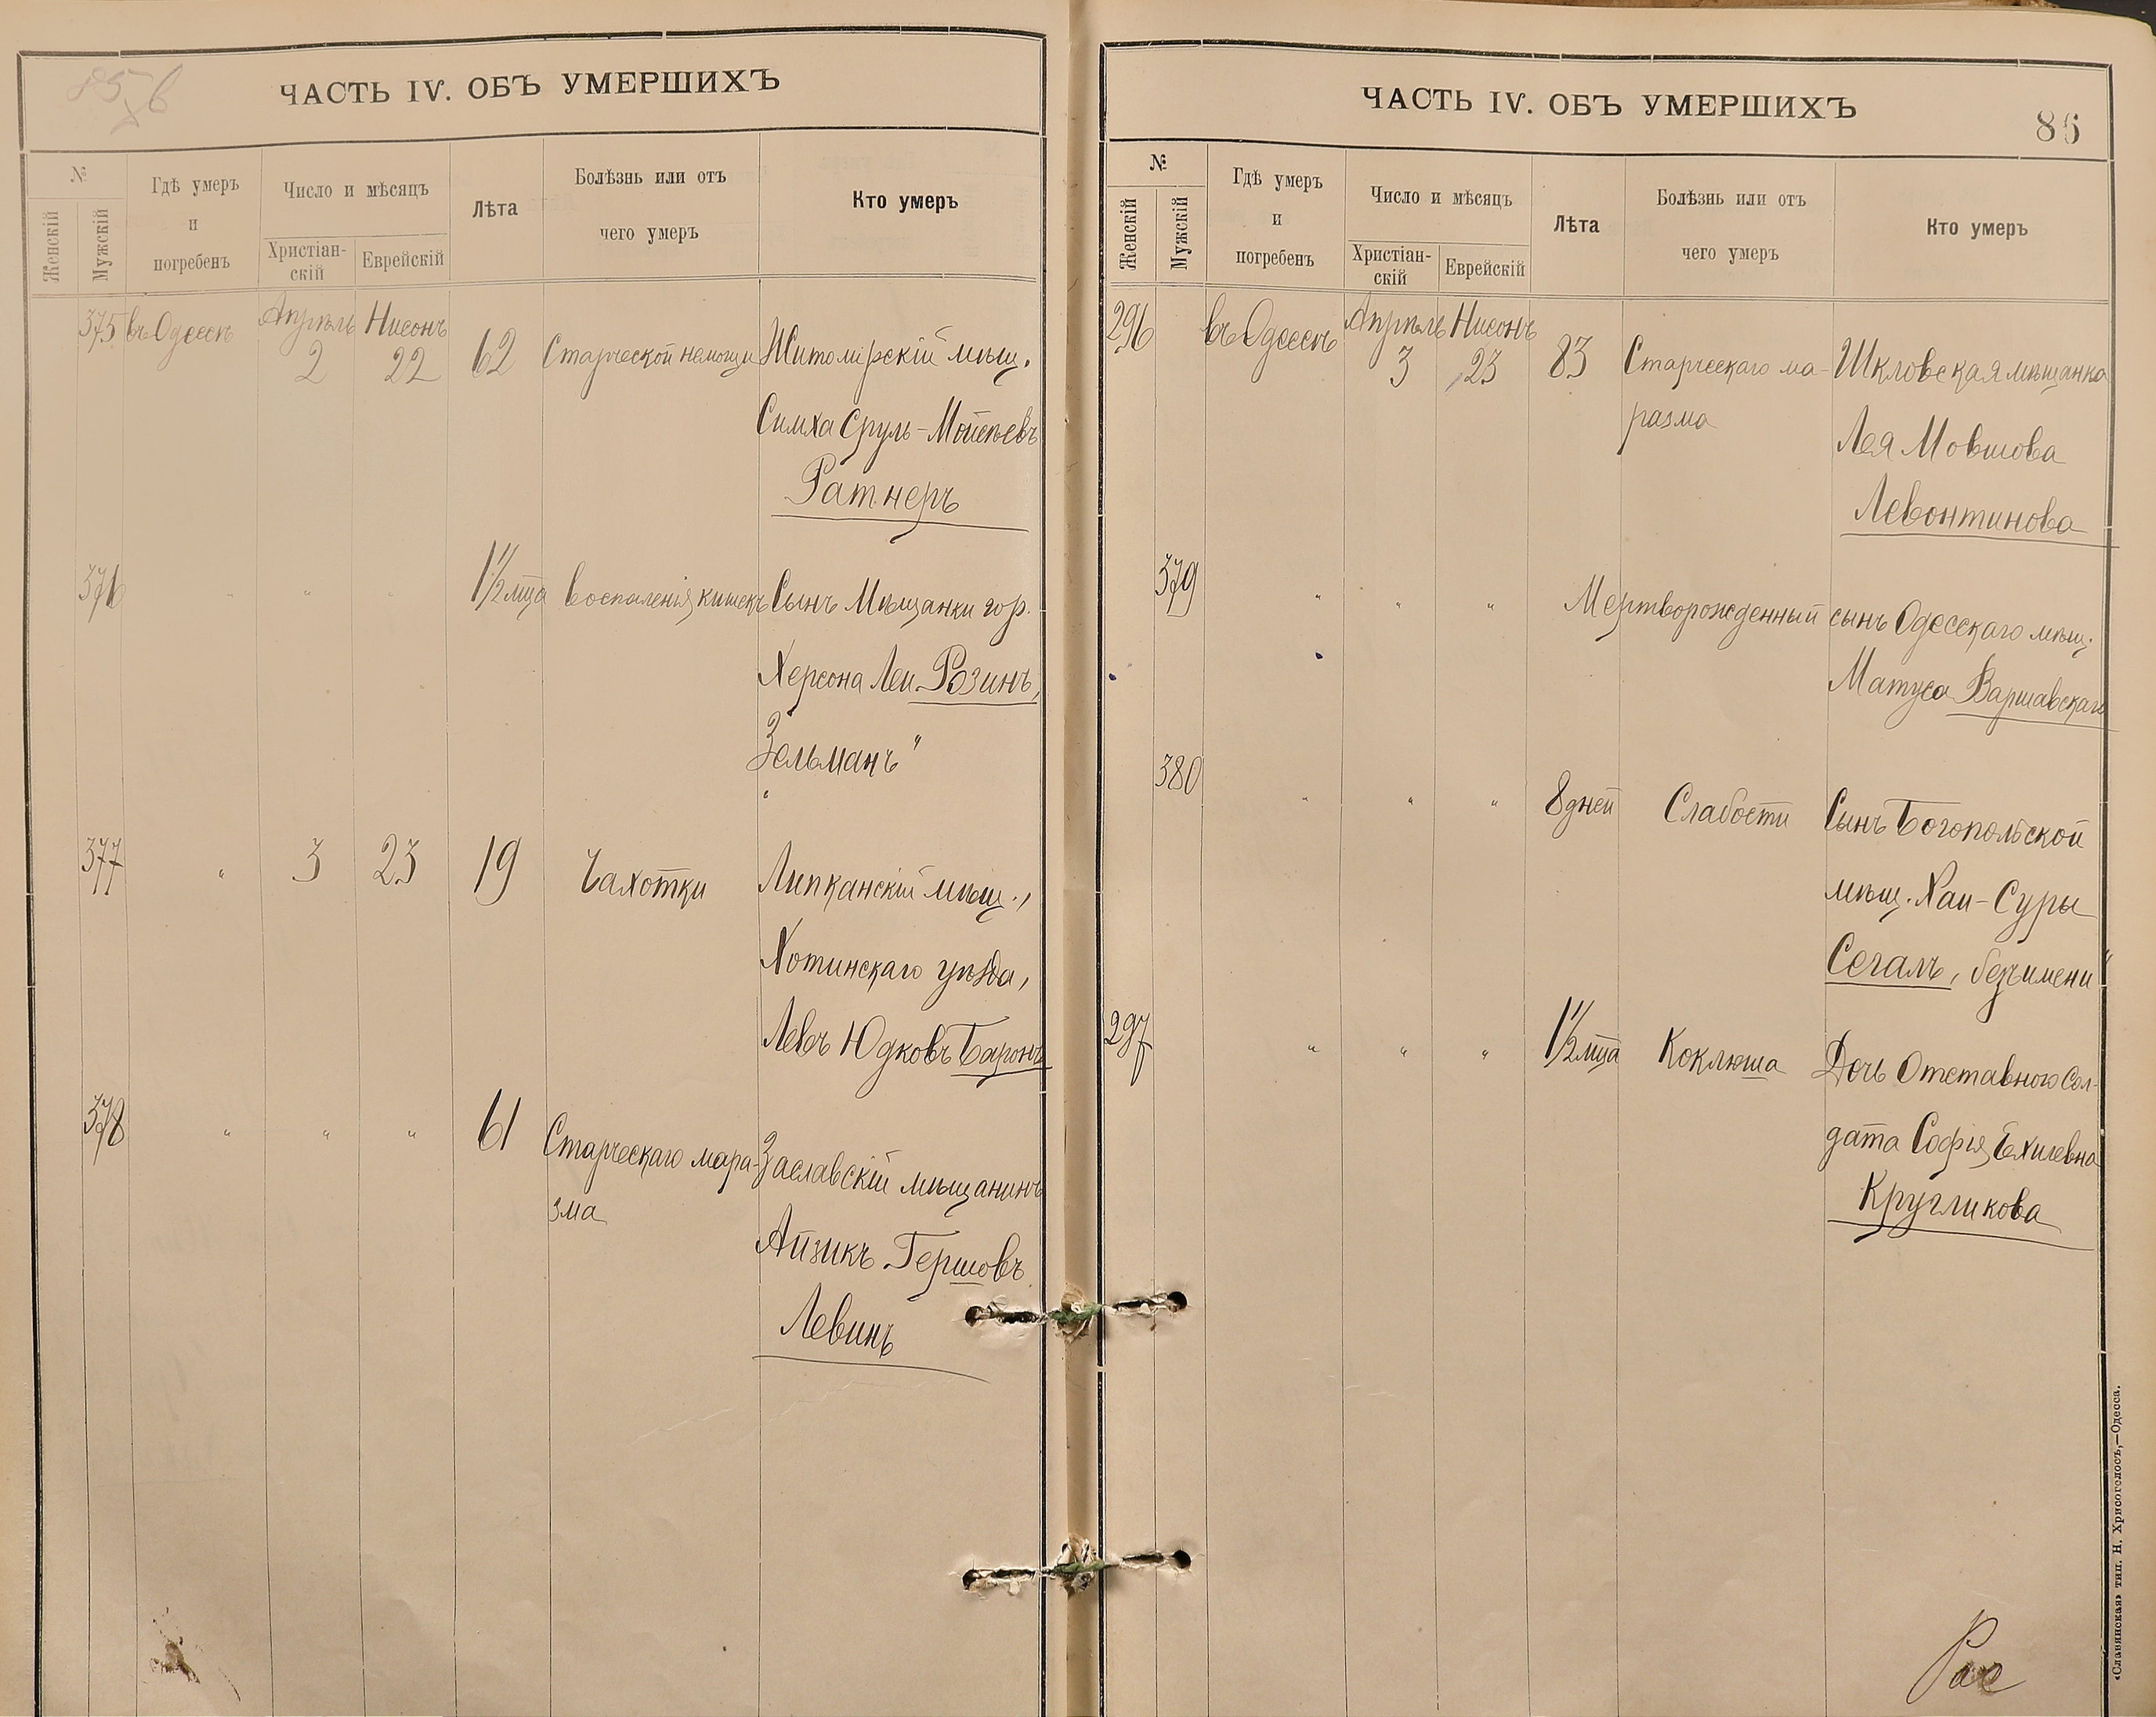 ЧАСТЬ IV. ОБЪ УМЕРШИХЪ
№
Женскій
Мужскій
Гдѣ умеръ
и
погребенъ
Число и мѣсяцъ
Христіан-
скій
Еврейскій
Лѣта
Болѣзнь или отъ
чего умеръ
Кто умеръ
375 въ Одессѣ Апрѣль 2 Нисонъ 22 62 Старческой немощи Житомірскій мѣщ.
Симха Сруль-Мойсѣевъ
Ратнеръ
376 " " " 1 1/2 мца Воспаленія кишекъ Сынъ Мѣщанки гор.
Херсона Леи Розинъ,
"Зельманъ"
377 " 3 23 19 Чахотки Липканскій мѣщ.,
Хотинскаго уѣзда,
Левъ Юдковъ Баронъ
378 " " " 61 Старческаго мара- Заславскій мѣщанинъ
зма
Айзикъ Гершовъ
Левинъ
ЧАСТЬ IV. ОБЪ УМЕРШИХЪ
86
№
Женскій
Мужскій
Гдѣ умеръ
и
погребенъ
Число и мѣсяцъ
Христіан-
скій
Еврейскій
Лѣта
Болѣзнь или отъ
чего умеръ
Кто умеръ
296 въ Одессѣ Апрѣль 3 Нисонъ 23 83 Старческаго ма- Шкловская мѣщанка
разма Лея Мовшова
Левонтинова
379 " " " Мертворожденный сынъ Одесскаго мѣщ.
Матуса Варшавскаго
380 " " " 8 дней Слабости Сынъ Богопольской
мѣщ. Хаи-Суры
Сегалъ, "безъ имени"
297 " " " 1 1/2 мца Коклюша Дочь Отставного Сол-
дата Софія Ехилевна
Кругликова
«Славянская» тип. Н. Хрисогелосъ,—Одесса.